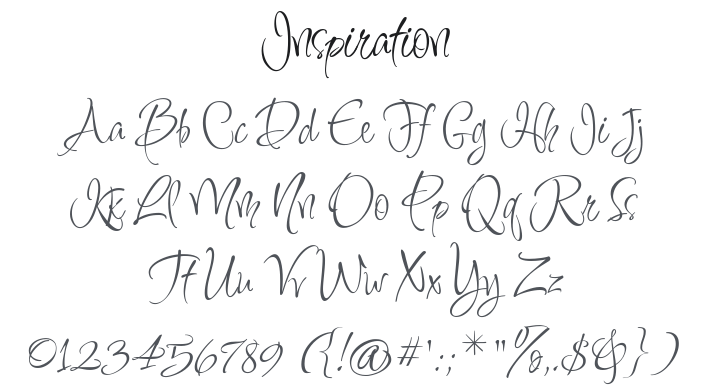 Inspiration
Aa Bb Cc Dd Ee Ff Gg Hh Ii Jj
Kk Ll Mm Nn Oo Pp Qq Rr Ss
Tt Uu Vv Ww Xx Yy Zz
0123456789 ({!@#':;*"%,.$&})